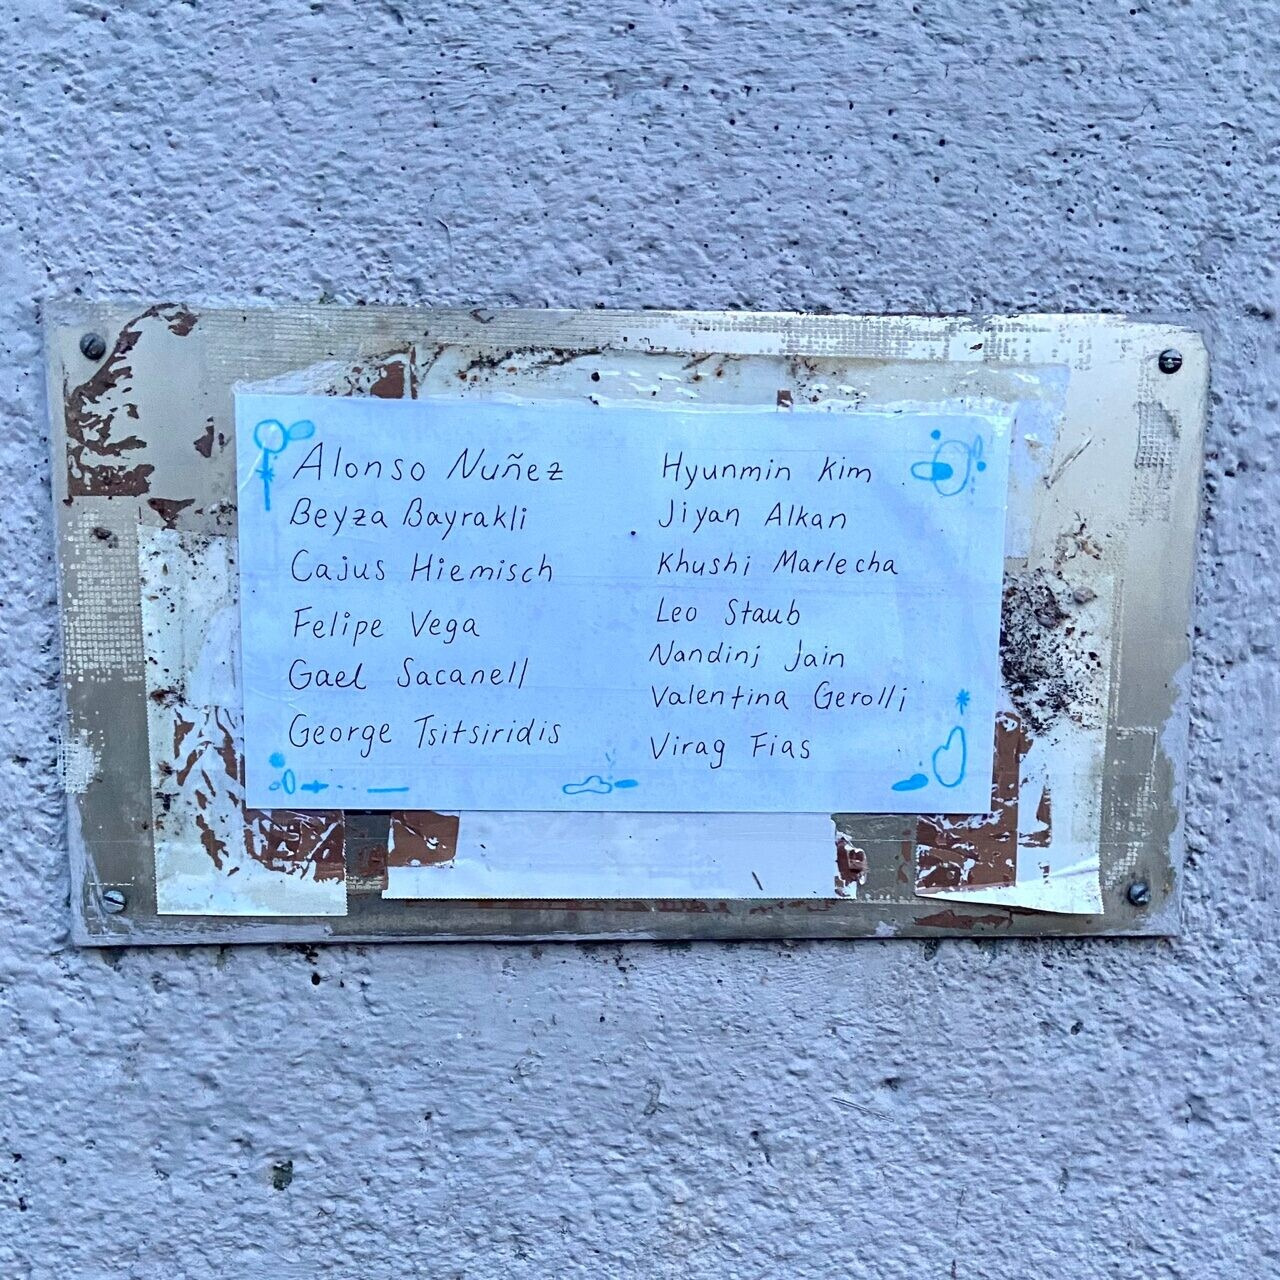 Alonso Nuñez
Beyza Bayrakli
Cajus Hiemisch
Felipe Vega
Gael Sacanell
George Tsitsiridis
Hyunmin Kim
Jiyan Alkan
Khushi Marlecha
Leo Staub
Nandini Jain
Valentina Gerolli
Virag Fias